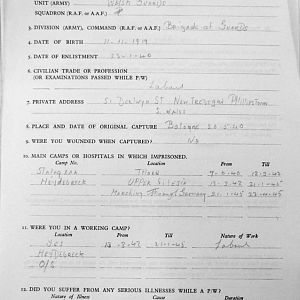 UNIT (ARMY) Welsh Guards
SQUADRON (R.A.F. or A.A.F.)
3. DIVISION (ARMY), COMMAND (R.A.F. or A.A.F.) Brigade of Guards
4. DATE OF BIRTH 11-11-1919
5. DATE OF ENLISTMENT 22-1-40
6. CIVILIAN TRADE OR PROFESSION
(OR EXAMINATIONS PASSED WHILE P/W) Labour
7. PRIVATE ADDRESS 51 Derlwyn St New Tredegar Phillipstown
S. Wales
8. PLACE AND DATE OF ORIGINAL CAPTURE Bologne 20.5.40
9. WERE YOU WOUNDED WHEN CAPTURED? No
10. MAIN CAMPS OR HOSPITALS IN WHICH IMPRISONED.
Camp No. Location From Till
Stalag Thorn
Heydebreck Upper Silesia 21-1-45
Marching Through Germany 21-1-45 22-4-45
11. WERE YOU IN A WORKING CAMP?
Location From Till Nature of Work
Yes 21-1-45 Labour
Heydebreck
O/S
12. DID YOU SUFFER FROM ANY SERIOUS ILLNESSES WHILE A P/W?
Nature of Illness Cause Duration